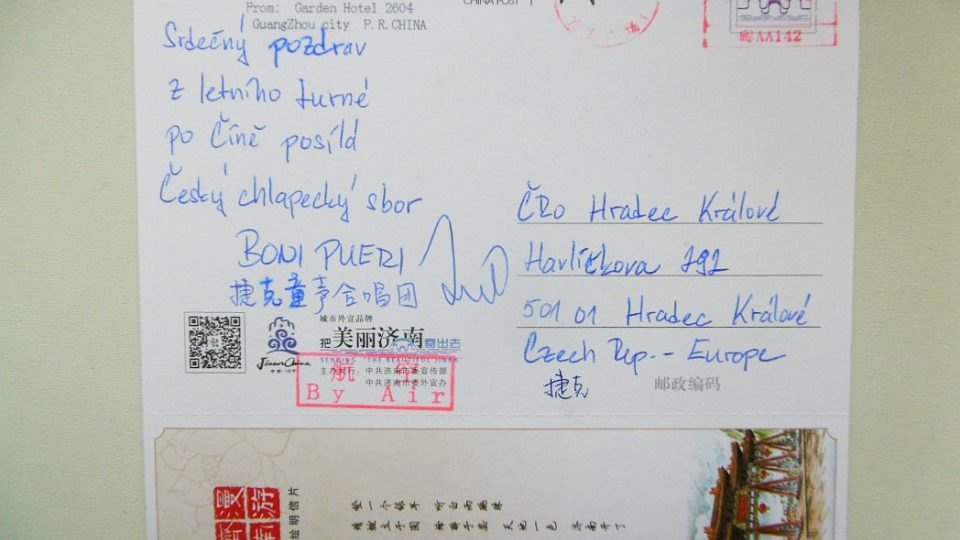 From: Garden Hotel 2604
GuangZhou city P.R.CHINA
CHINA POST
粤AA142
Srdečný pozdrav
z letního turné
po Číně posílá
Český chlapecký sbor
BONI PUERI
捷克童声合唱团
ČRo Hradec Králové
Havlíčkova 292
501 01 Hradec Králové
Czech Rep. - Europe
捷克
邮政编码
城市外宣品牌
把美丽济南寄出去
SENDING "THE BEAUTIFUL JINAN"
主办发行: 中共济南市委宣传部
中共济南市委外宣办
JinanChina
中国·济南
航空
By Air
漫游
绘明信片
天地一色 济南